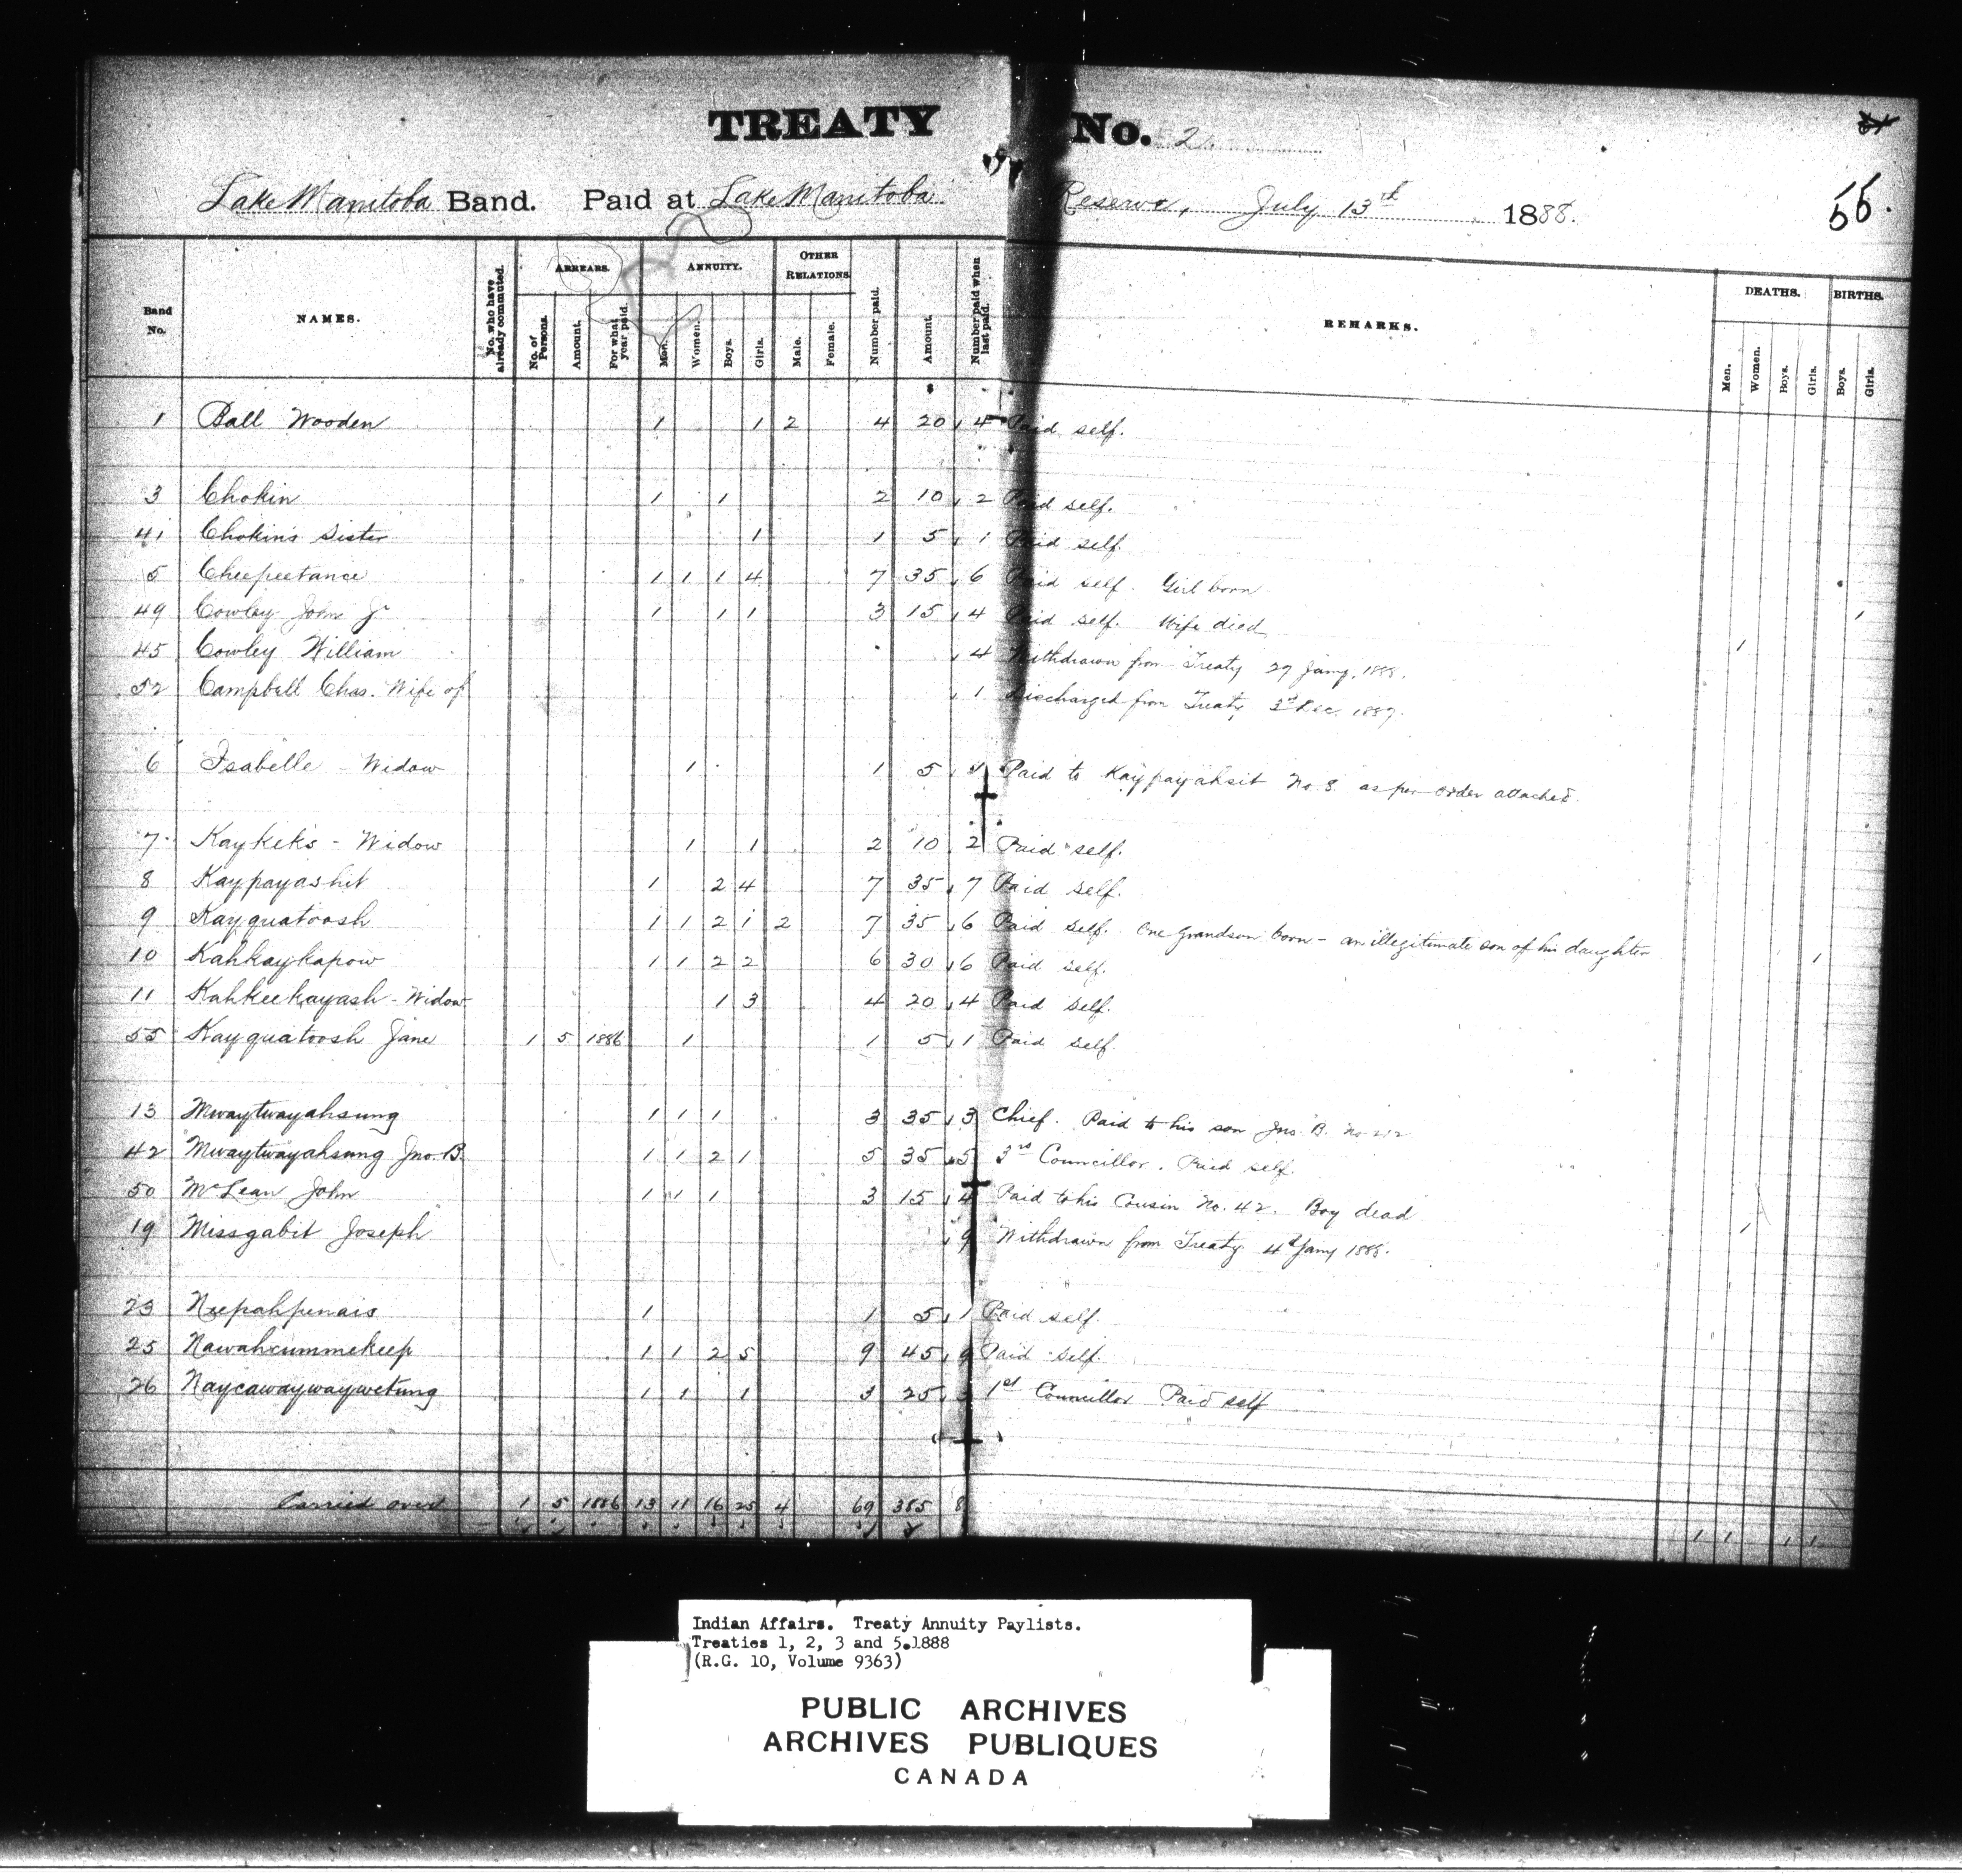 TREATY No. 2.
Lake Manitoba Band. Paid at Lake Manitoba Reserve, July 13th 1888. 56.
Band No. NAMES. No. who have already commuted. ARREARS. No. of Persons. Amount. For what year paid. ANNUITY. Men. Women. Boys. Girls. OTHER RELATIONS. Male. Female. Number paid. Amount. Number paid when last paid. REMARKS. DEATHS. Men. Women. Boys. Girls. BIRTHS. Boys. Girls.
$
1 Ball Wooden 1 1 2 4 20 4 Paid self.
3 Chokin 1 1 2 10 2 Paid self.
41 Chokin's Sister 1 1 5 1 Paid self.
5 Cheepeetance 1 1 1 4 7 35 6 Paid self. Girl born 1
49 Cowley John Jr 1 1 1 3 15 4 Paid self. Wife died 1
45 Cowley William 4 Withdrawn from Treaty 27 Jany, 1888.
52 Campbell Chas. Wife of 1 Discharged from Treaty 3rd Dec. 1887.
6 Isabelle - Widow 1 1 5 1 Paid to Kaypayahsit No. 8 as per order attached.
7 Kaykeks - Widow 1 1 2 10 2 Paid self.
8 Kaypayashit 1 2 4 7 35 7 Paid self.
9 Kayquatoosh 1 1 2 1 2 7 35 6 Paid self. One grandson born - an illegitimate son of his daughter 1
10 Kahkaykapow 1 1 2 2 6 30 6 Paid self.
11 Kahkeekayash - Widow 1 3 4 20 4 Paid self.
55 Kayquatoosh Jane 1 5 1886 1 1 5 1 Paid self.
13 Mwaytwayahsung 1 1 1 3 35 3 Chief. Paid to his son Jno. B. No 42
42 Mwaytwayahsung Jno. B. 1 1 2 1 5 35 5 3rd Councillor. Paid self.
50 McLean John 1 1 1 3 15 4 Paid to his Cousin No. 42. Boy dead 1
19 Missgabit Joseph 9 Withdrawn from Treaty 4th Jany 1888.
23 Neepahpenais 1 1 5 1 Paid self.
25 Nawahcummekeep 1 1 2 5 9 45 9 Paid self.
26 Naycawaywaywetung 1 1 1 3 25 3 1st Councillor Paid self
Carried over 1 5 1886 13 11 16 25 4 69 385 8
1 1 1 1
Indian Affairs. Treaty Annuity Paylists.
Treaties 1, 2, 3 and 5.1888
(R.G. 10, Volume 9363)
PUBLIC ARCHIVES
ARCHIVES PUBLIQUES
CANADA